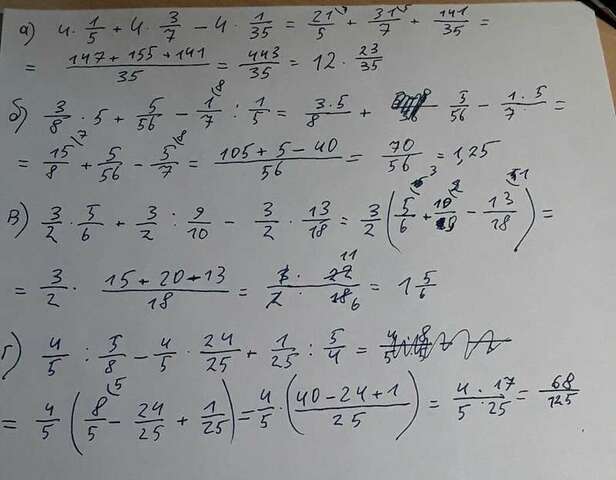 а) 4 · 1/5 + 4 · 3/7 - 4 · 1/35 = 21/5 + 31/7 + 141/35 =
= (147 + 155 + 141)/35 = 443/35 = 12 · 23/35
б) 3/8 · 5 + 5/56 - 1/7 : 1/5 = (3·5)/8 + 5/56 - (1·5)/7 =
= 15/8 + 5/56 - 5/7 = (105 + 5 - 40)/56 = 70/56 = 1,25
в) 3/2 · 5/6 + 3/2 : 9/10 - 3/2 · 13/18 = 3/2 (5/6 + 10/9 - 13/18) =
= 3/2 · (15 + 20 + 13)/18 = = 1 5/6
г) 4/5 : 5/8 - 4/5 · 24/25 + 1/25 : 5/4 =
= 4/5 (8/5 - 24/25 + 1/25) = 4/5 · ((40 - 24 + 1)/25) = (4 · 17)/(5 · 25) = 68/125